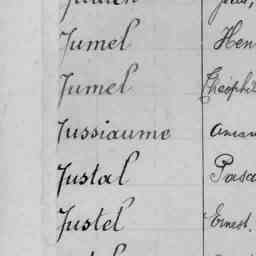 Jumel Hen
Jumel Théophil
Jussiaume Aman
Justal Pasca
Justel Ernest.